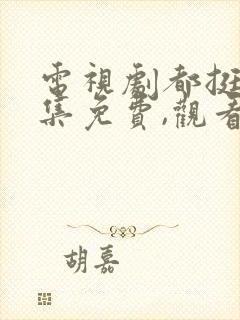 電視劇都挺
集免費,觀看
胡嘉